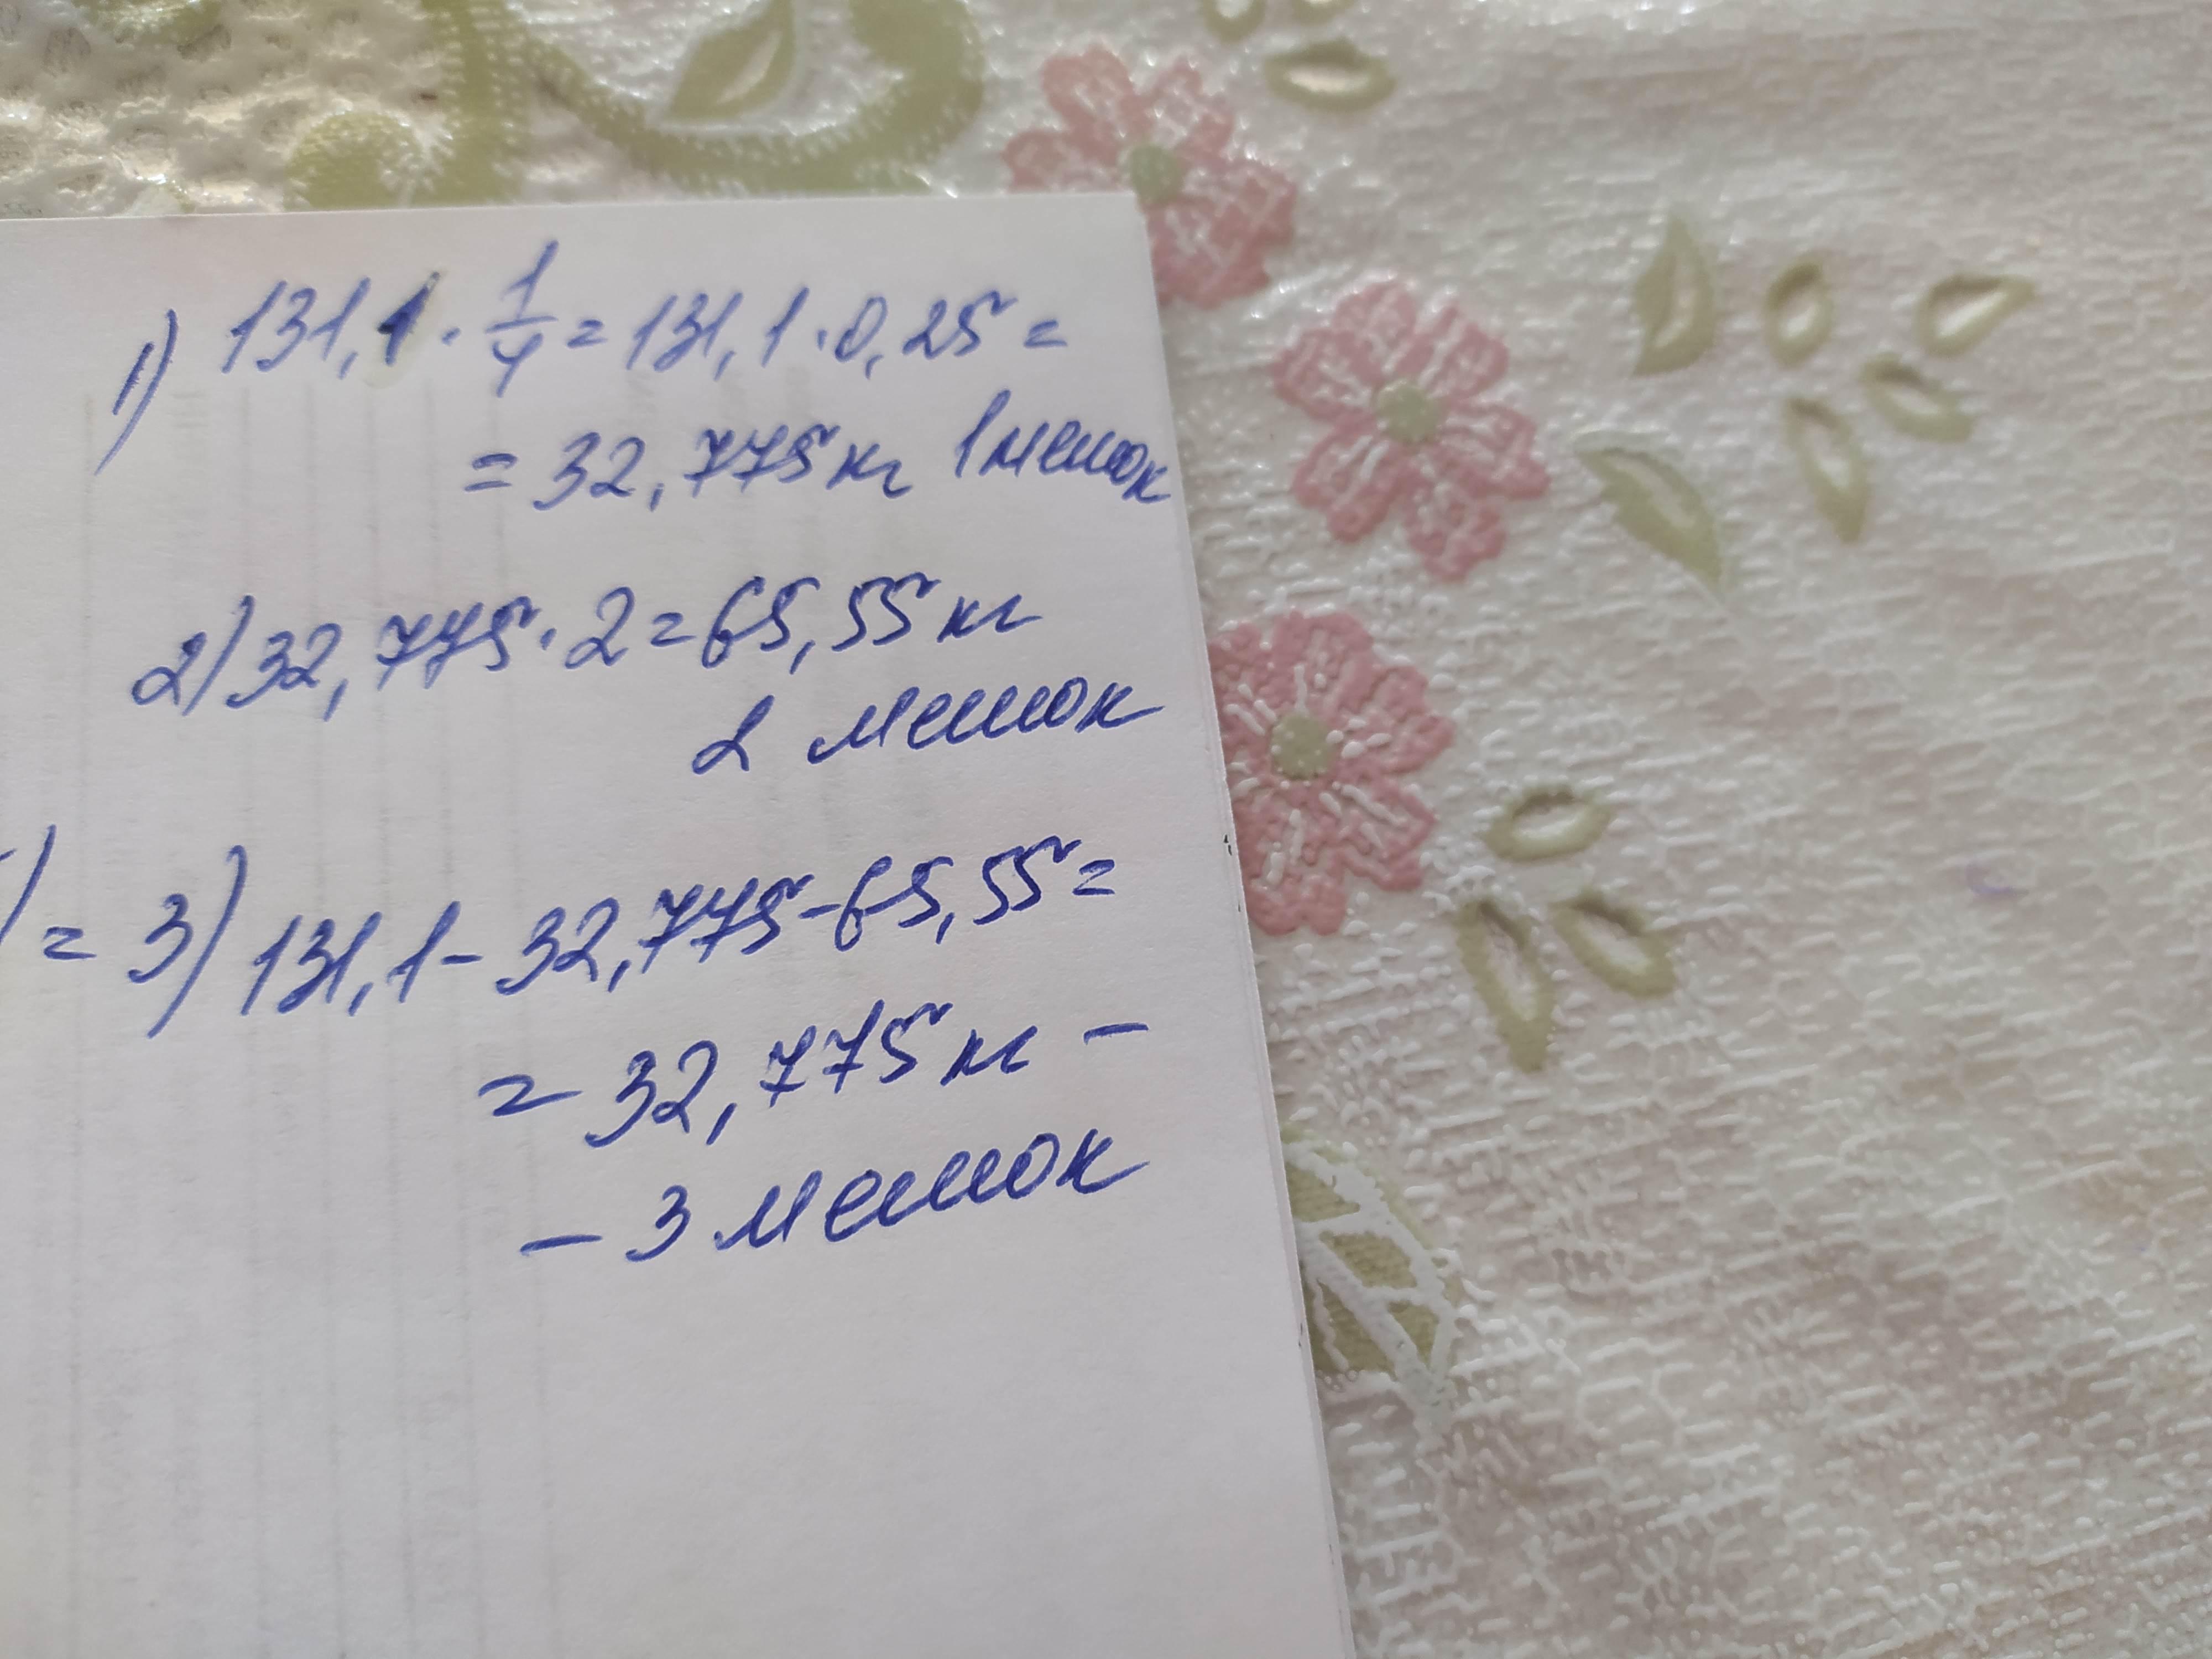 1) 131,1 · 1/4 = 131,1 · 0,25 =
= 32,775 кг 1 мешок
2) 32,775 · 2 = 65,55 кг
2 мешок
) = 3) 131,1 - 32,775 - 65,55 =
= 32,775 кг -
- 3 мешок